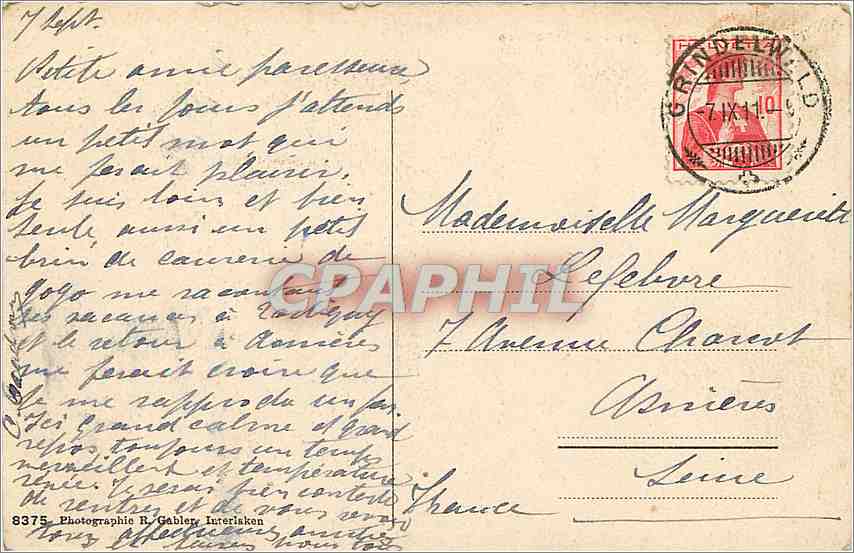 7 Sept.
Petite amie paresseuse,
tous les jours j'attends
un petit mot qui
me ferait plaisir.
Je suis loin et bien
seule aussi un petit
brin de causerie de
gogo me racontant
ses vacances à
et le retour à Asnières
me ferait croire que
je me rapproche un peu
Ici grand calme et grand
repos toujours un temps
merveilleux et température
Je serai bien contente
de rentrer et de vous revoir
affectueuses amitiés
et à vous tous
8375 Photographie R. Gabler, Interlaken
GRINDELWALD
-7.IX.11.-
HELVETIA
10
Mademoiselle Marguerite
Lefebvre
7 Avenue Charcot
Asnières
Seine
France
CPAPHIL